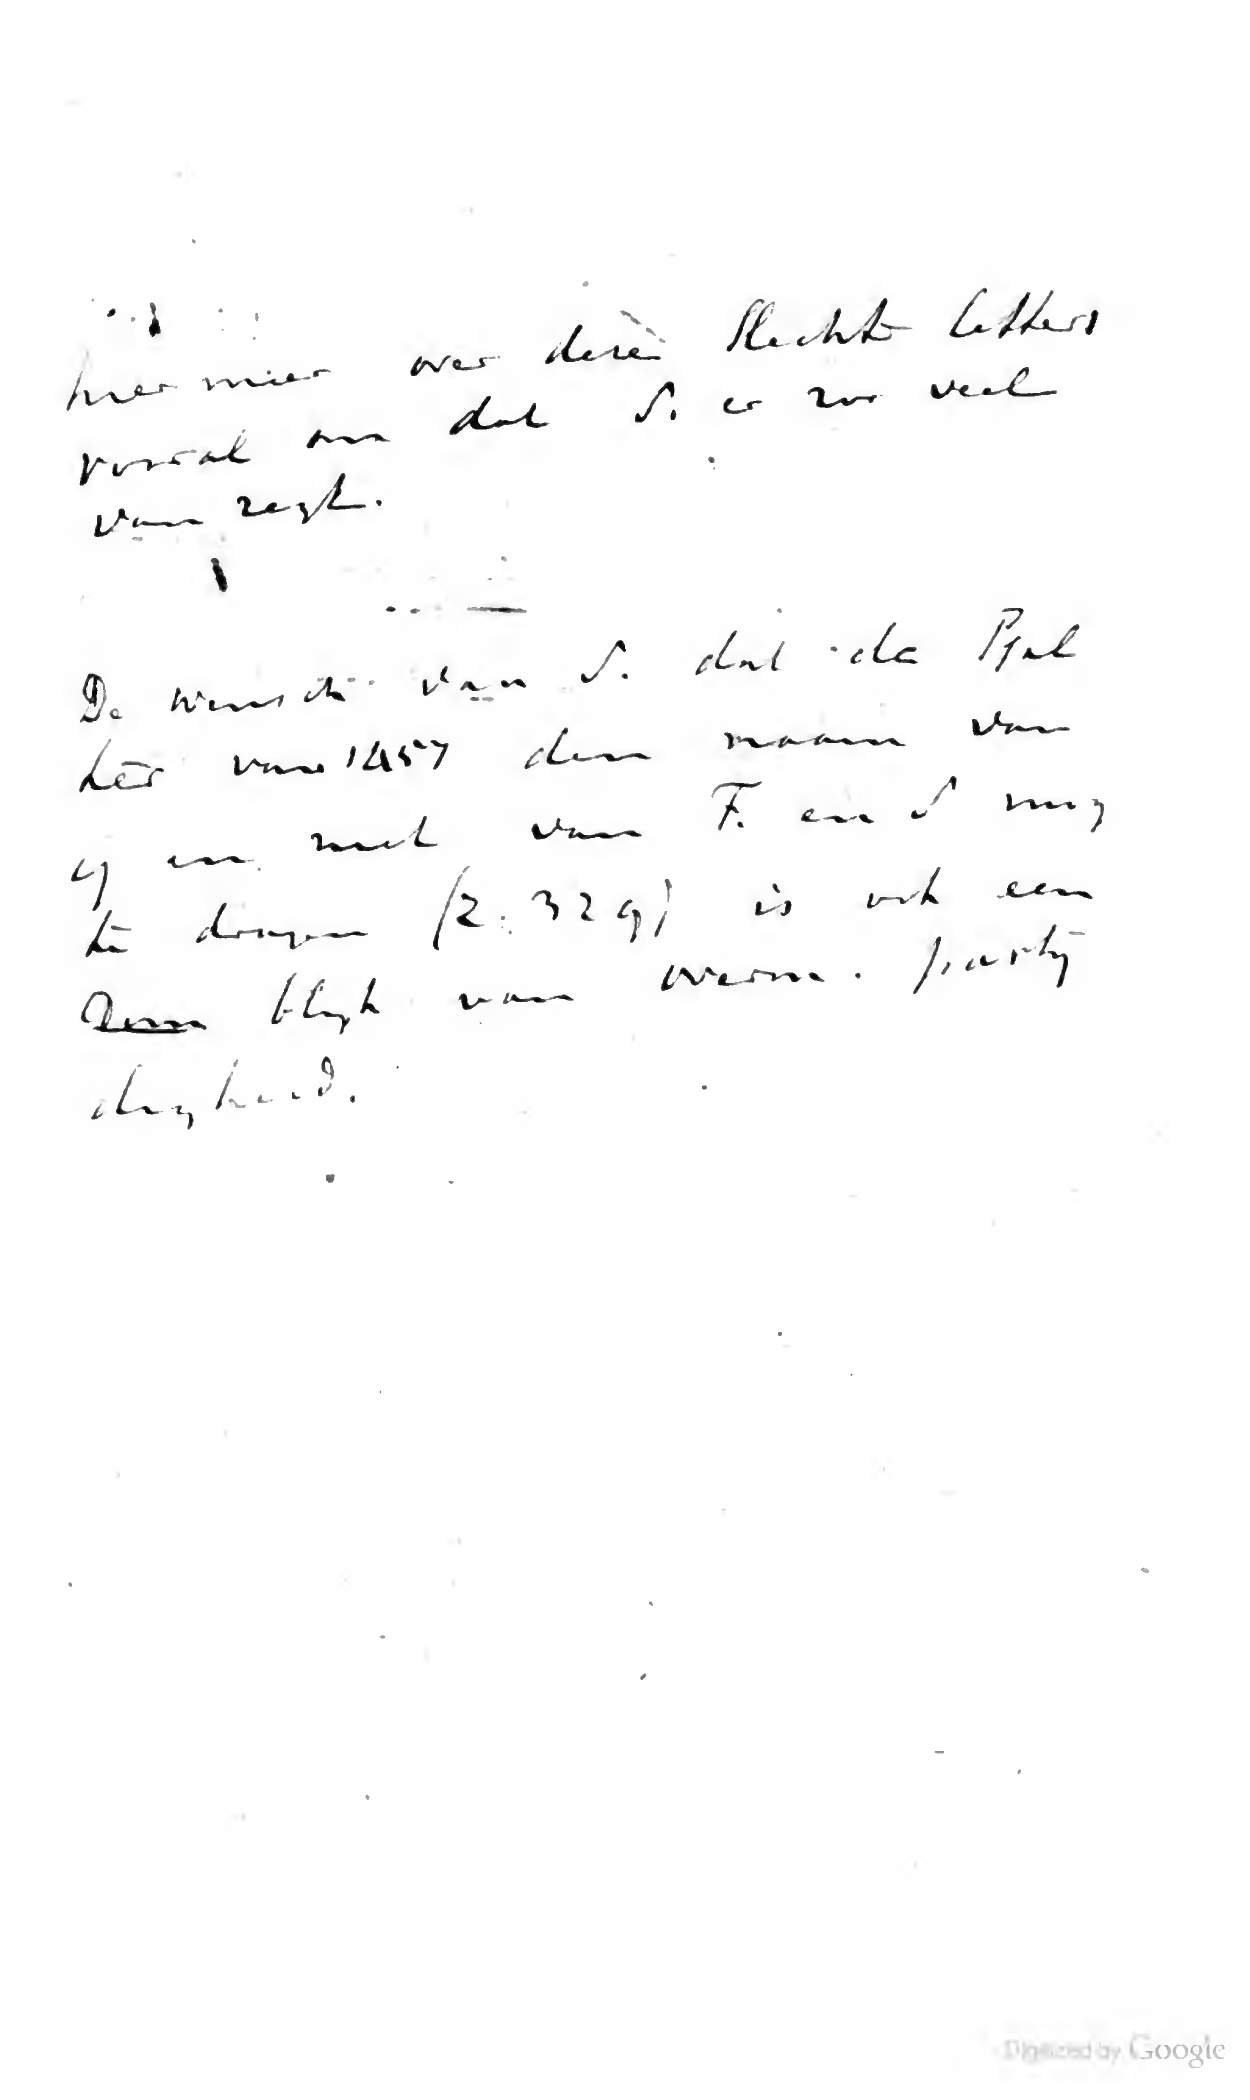 hier meer over deze Slechte letters
vooral om dat S. er zoo veel
van zegt.
De wensch van S. dat de Psal
ter van 1457 den naam van
en niet van F. en S mog
te dragen (2. 329) is ook een
blijk van overm. partij
digheid.
Digitized by Google